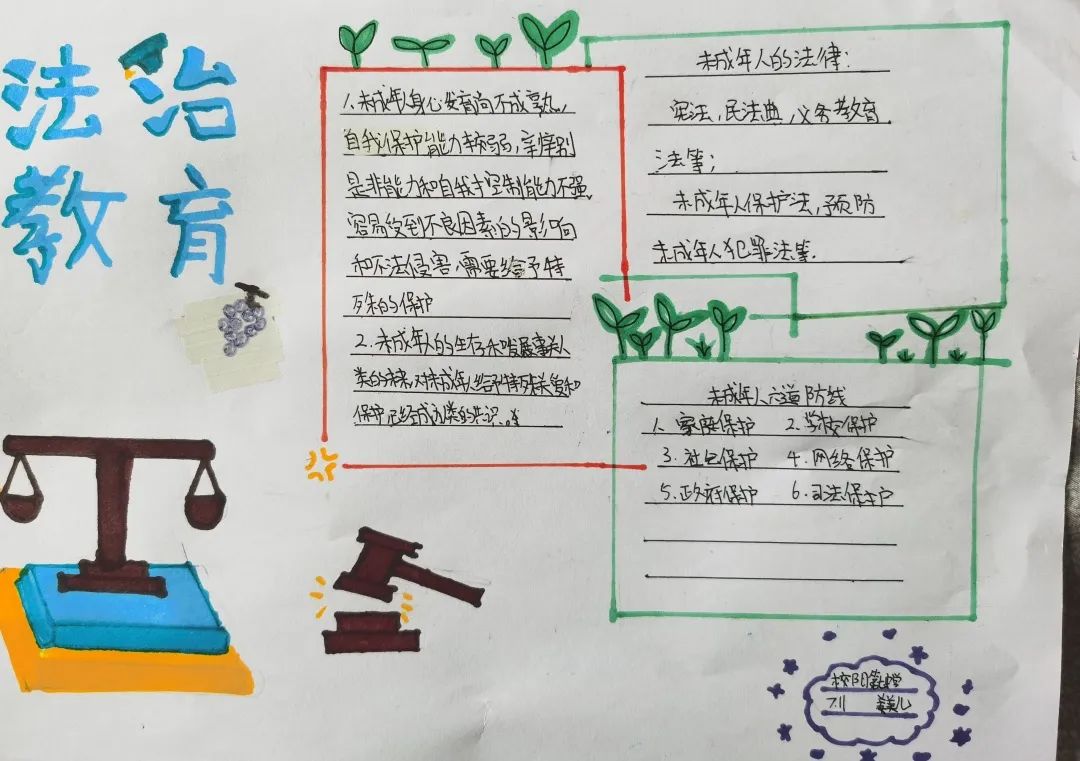 法治
教育
1、未成年人身心发育尚不成熟,
自我保护能力较弱,辛辨别
是非能力和自我控制能力不强,
容易受到不良因素的影响
和不法侵害,需要给予特
殊的保护
2、未成年人的生存和发展事关人
类的未来,对未成年人给予特殊关爱和
保护,已经成为人类的共识。
未成年人的法律:
宪法,民法典,义务教育
法等;
未成年人保护法,预防
未成年人犯罪法等.
未成年人六道防线
1、家庭保护 2、学校保护
3、社会保护 4、网络保护
5、政府保护 6、司法保护